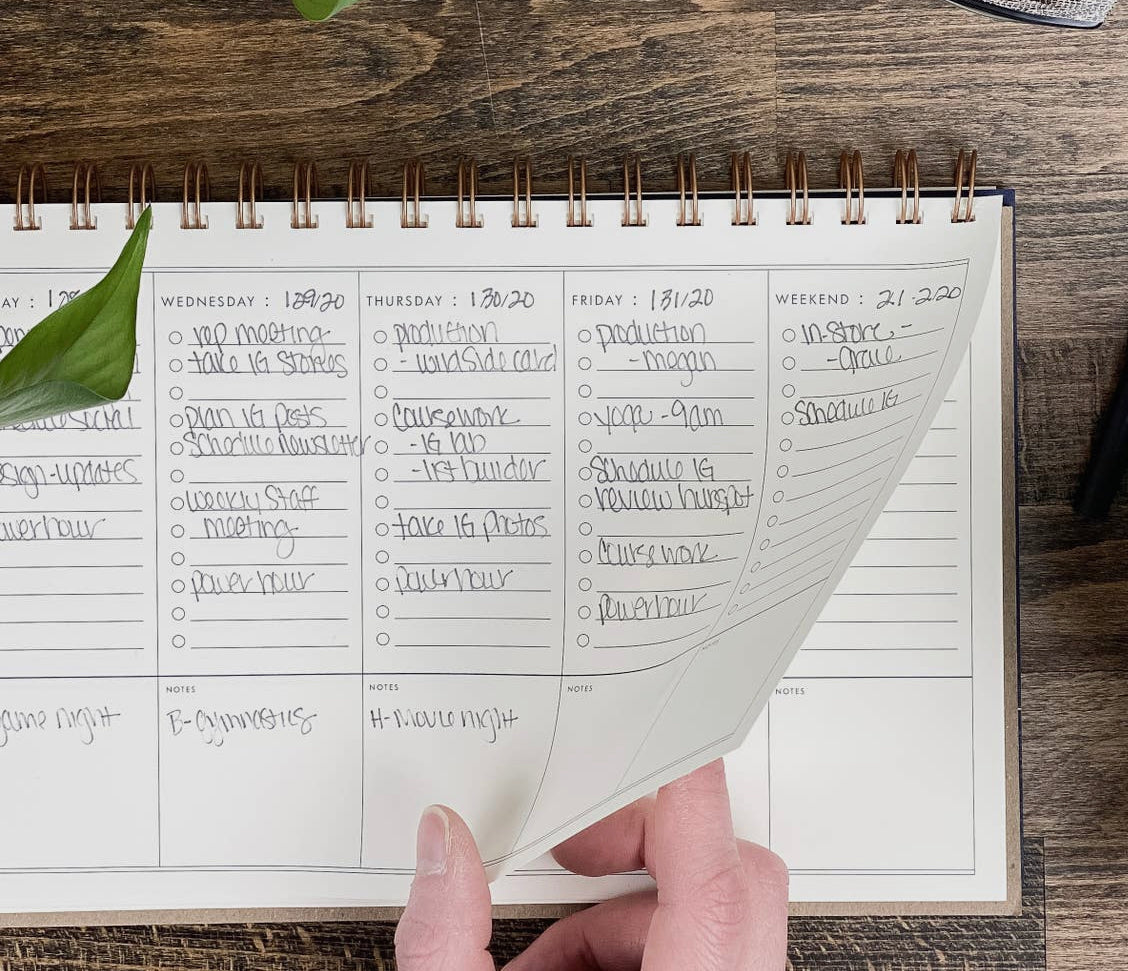 AY :
WEDNESDAY : 1/29/20
THURSDAY : 1/30/20
FRIDAY : 1/31/20
WEEKEND : 2.1 - 2/20
esign-updates
owerhour
game night
rep meeting
take IG Stories
plan IG posts
Schedule Newsletter
Weekly Staff
meeting
power hour
NOTES
B-Gymnastics
production
- wildside card
Coursework
- IG lab
- 1st builder
take IG photos
power hour
NOTES
H-Movie night
production
- megan
yoga - 9am
Schedule IG
review hubspot
Coursework
powerhour
NOTES
In-Store -
- grace
Schedule IG
NOTES